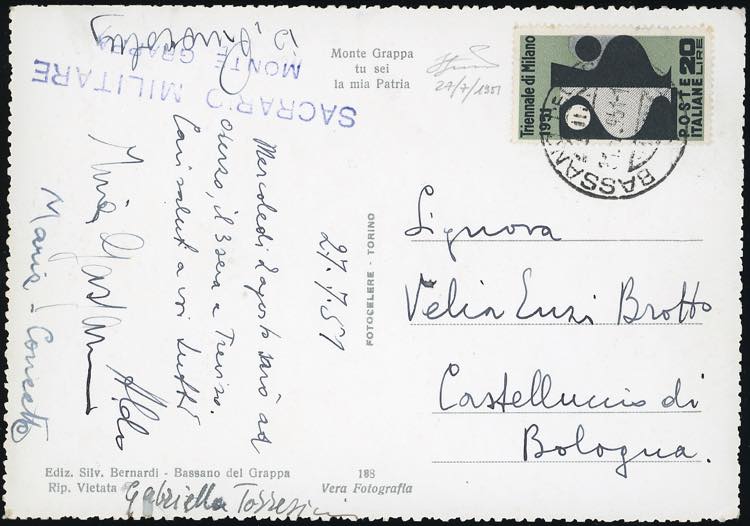 Monte Grappa
tu sei
la mia Patria
27/7/1951
Triennale di Milano
1951
POSTE ITALIANE
LIRE 20
BASSANO DEL
SACRARIO MILITARE
MONTE GRAPPA
27.7.51
Mercoledì 2 agosto sarò ad
il 3 sera a Treviso.
Cari saluti a voi tutti
Aldo
Maria - Concetta
Gabriella
Signora
Velia Enzi Brotto
Castelluccio di
Bologna.
FOTOCELERE - TORINO
Ediz. Silv. Bernardi - Bassano del Grappa
Rip. Vietata
188
Vera Fotografia